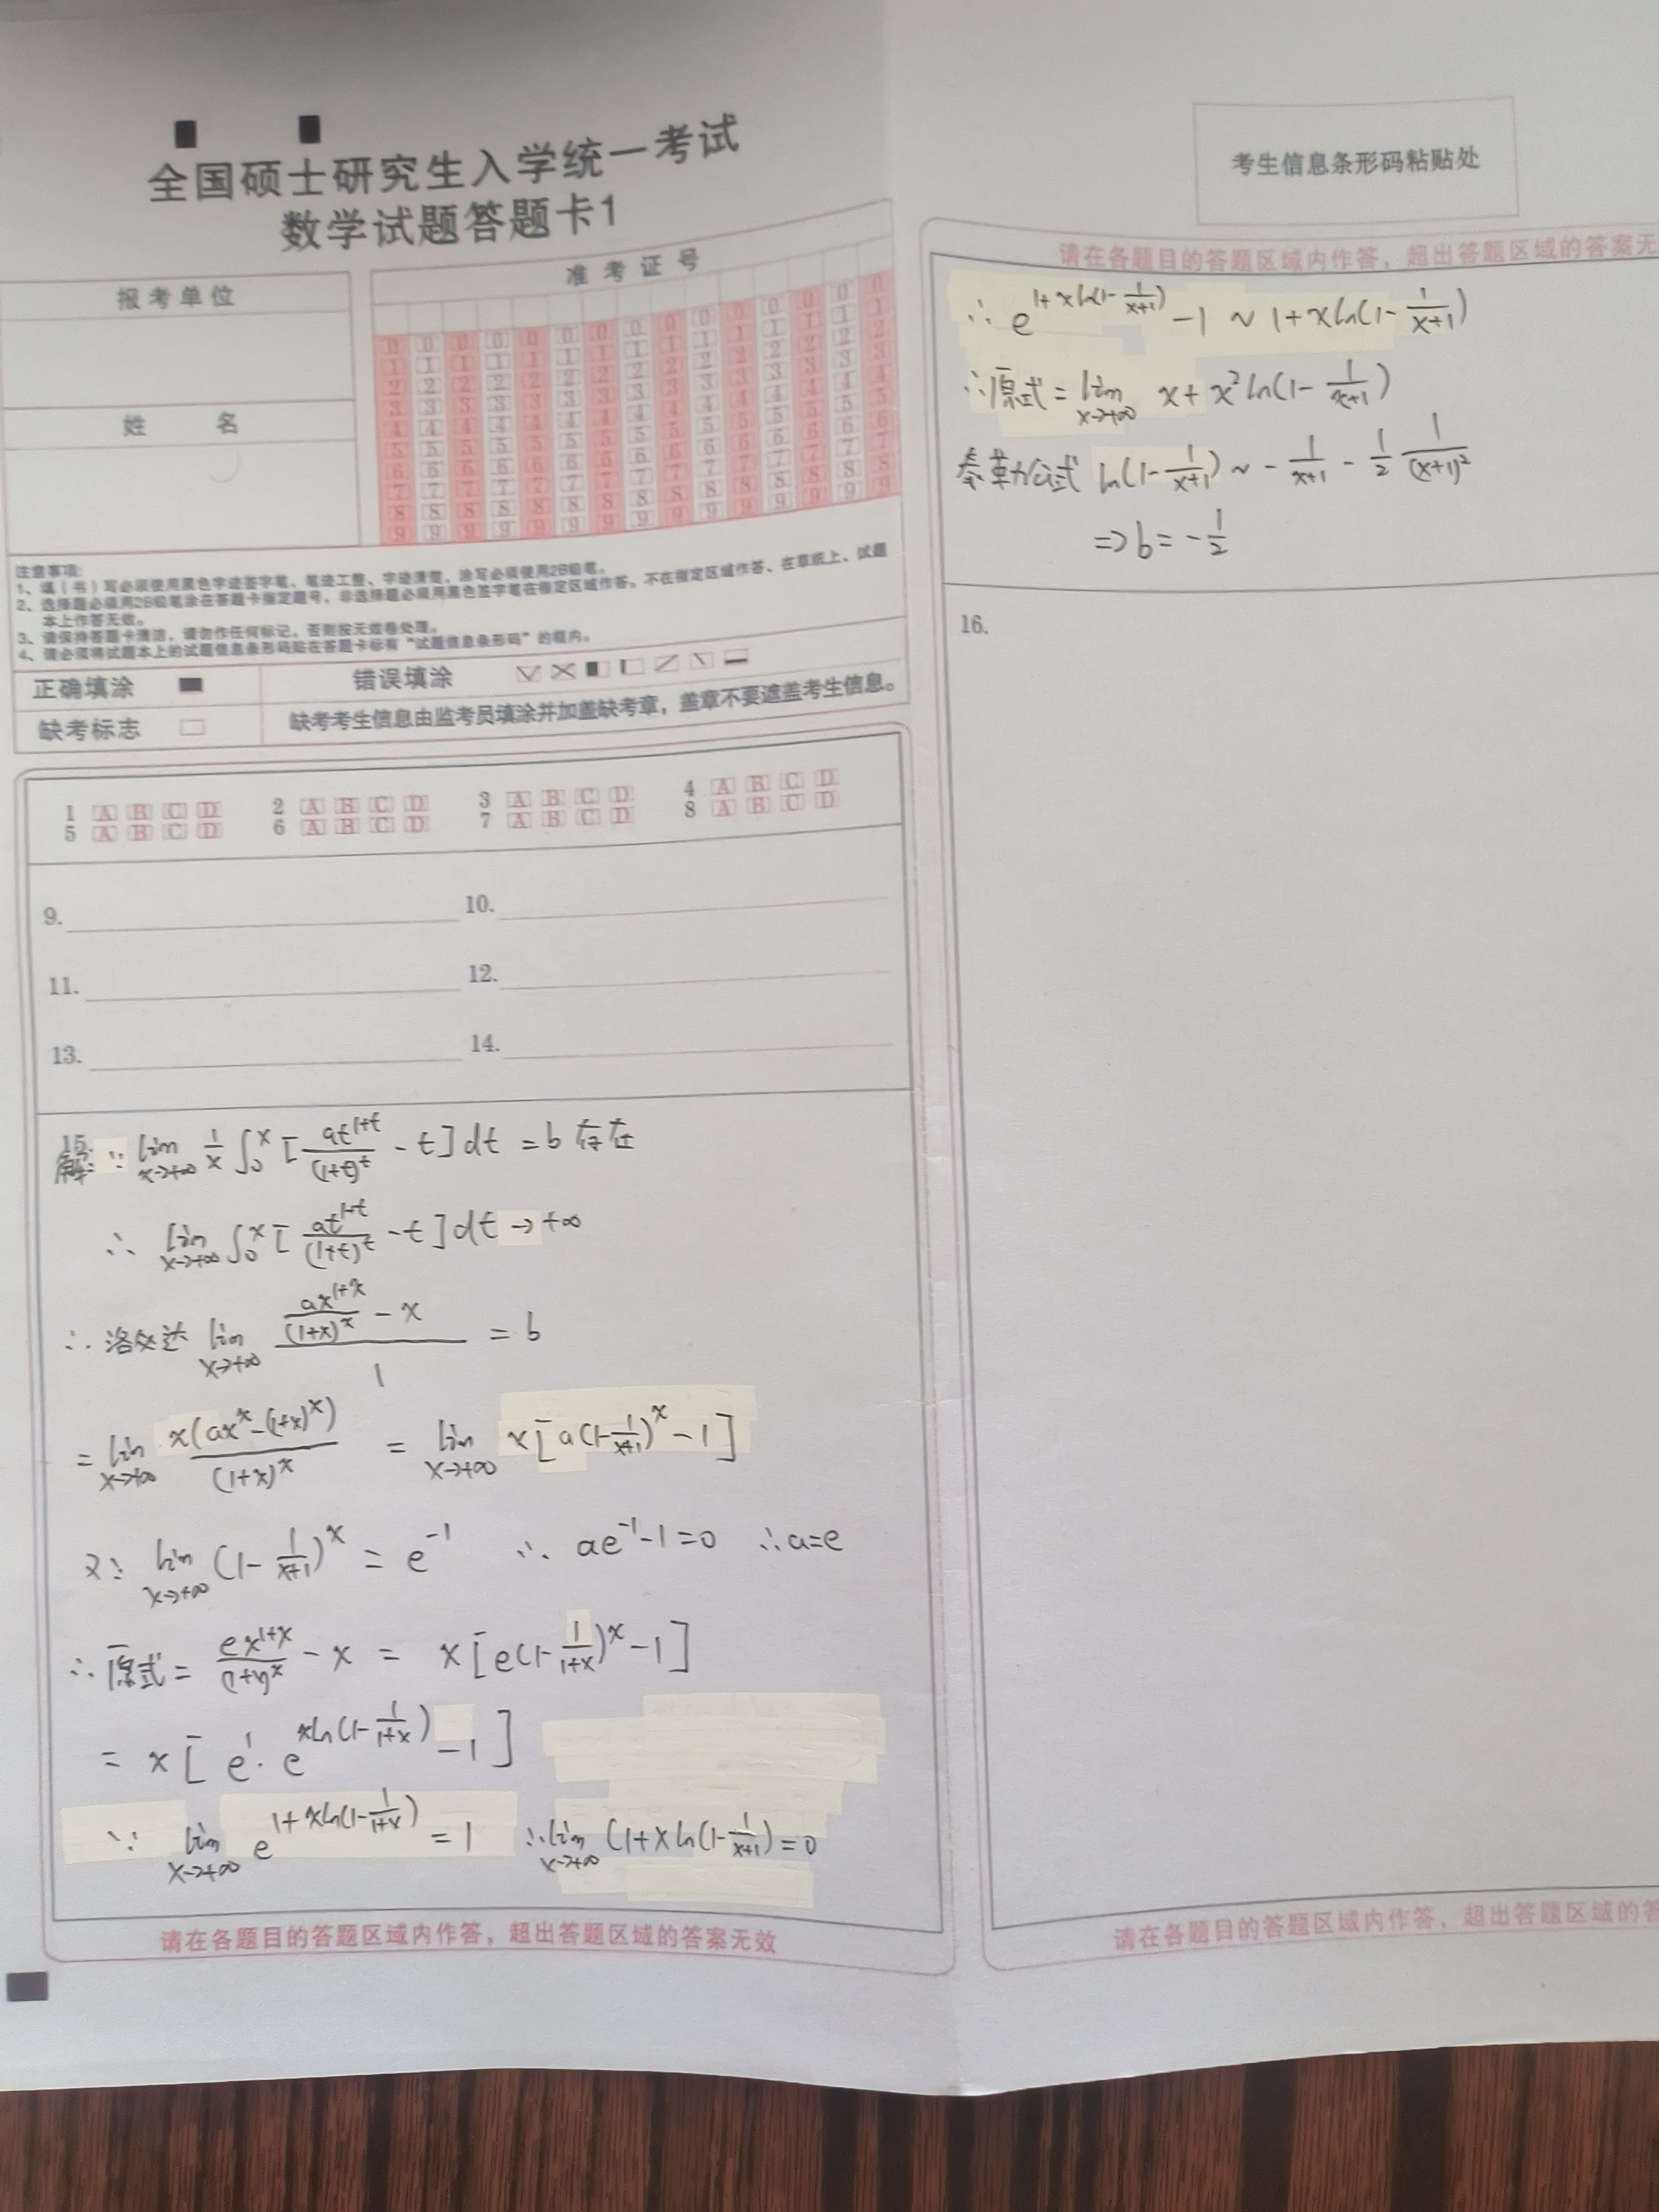 全国硕士研究生入学统一考试
数学试题答题卡1
报考单位
准考证号
姓名
0 0 0 0 0 0 0 0 0 0 0 0 0 0 0
1 1 1 1 1 1 1 1 1 1 1 1 1 1 1
2 2 2 2 2 2 2 2 2 2 2 2 2 2 2
3 3 3 3 3 3 3 3 3 3 3 3 3 3 3
4 4 4 4 4 4 4 4 4 4 4 4 4 4 4
5 5 5 5 5 5 5 5 5 5 5 5 5 5 5
6 6 6 6 6 6 6 6 6 6 6 6 6 6 6
7 7 7 7 7 7 7 7 7 7 7 7 7 7 7
8 8 8 8 8 8 8 8 8 8 8 8 8 8 8
9 9 9 9 9 9 9 9 9 9 9 9 9 9 9
注意事项:
1、填(书)写必须使用黑色字迹签字笔,笔迹工整、字迹清楚,涂写必须使用2B铅笔。
2、选择题必须用2B铅笔涂在答题卡指定题号,非选择题必须用黑色签字笔在指定区域作答。不在指定区域作答、在草纸上、试题
本上作答无效。
3、请保持答题卡清洁,请勿作任何标记,否则按无效卷处理。
4、请必须将试题本上的试题信息条形码贴在答题卡标有“试题信息条形码”的框内。
正确填涂 错误填涂
缺考标志 缺考考生信息由监考员填涂并加盖缺考章,盖章不要遮盖考生信息。
1 A B C D 2 A B C D 3 A B C D 4 A B C D
5 A B C D 6 A B C D 7 A B C D 8 A B C D
9. 10.
11. 12.
13. 14.
15.
解: ∵ lim x→+∞ 1/x ∫₀^x [at^(1+t)/(1+t)^t - t]dt = b 存在
∴ lim x→+∞ ∫₀^x [at^(1+t)/(1+t)^t - t]dt → +∞
∴ 洛必达 lim x→+∞ (ax^(1+x)/(1+x)^x - x)/1 = b
= lim x→+∞ x(ax^x-(1+x)^x)/(1+x)^x = lim x→+∞ x[a(1-1/(x+1))^x - 1]
又∵ lim x→+∞ (1-1/(x+1))^x = e^(-1) ∴ ae^(-1)-1=0 ∴a=e
∴原式 = ex^(1+x)/(1+x)^x - x = x[e(1-1/(1+x))^x - 1]
= x[e^1·e^(xln(1-1/(1+x))) - 1]
∵ lim x→+∞ e^(1+xln(1-1/(1+x))) = 1 ∴lim x→+∞ (1+xln(1-1/(x+1))=0
请在各题目的答题区域内作答,超出答题区域的答案无效
考生信息条形码粘贴处
请在各题目的答题区域内作答,超出答题区域的答案无
∴ e^(1+xln(1-1/(x+1))) - 1 ~ 1+xln(1-1/(x+1))
∴原式 = lim x→+∞ x+x²ln(1-1/(x+1))
泰勒公式 ln(1-1/(x+1)) ~ -1/(x+1) - 1/2 1/(x+1)²
⇒ b = -1/2
16.
请在各题目的答题区域内作答,超出答题区域的答